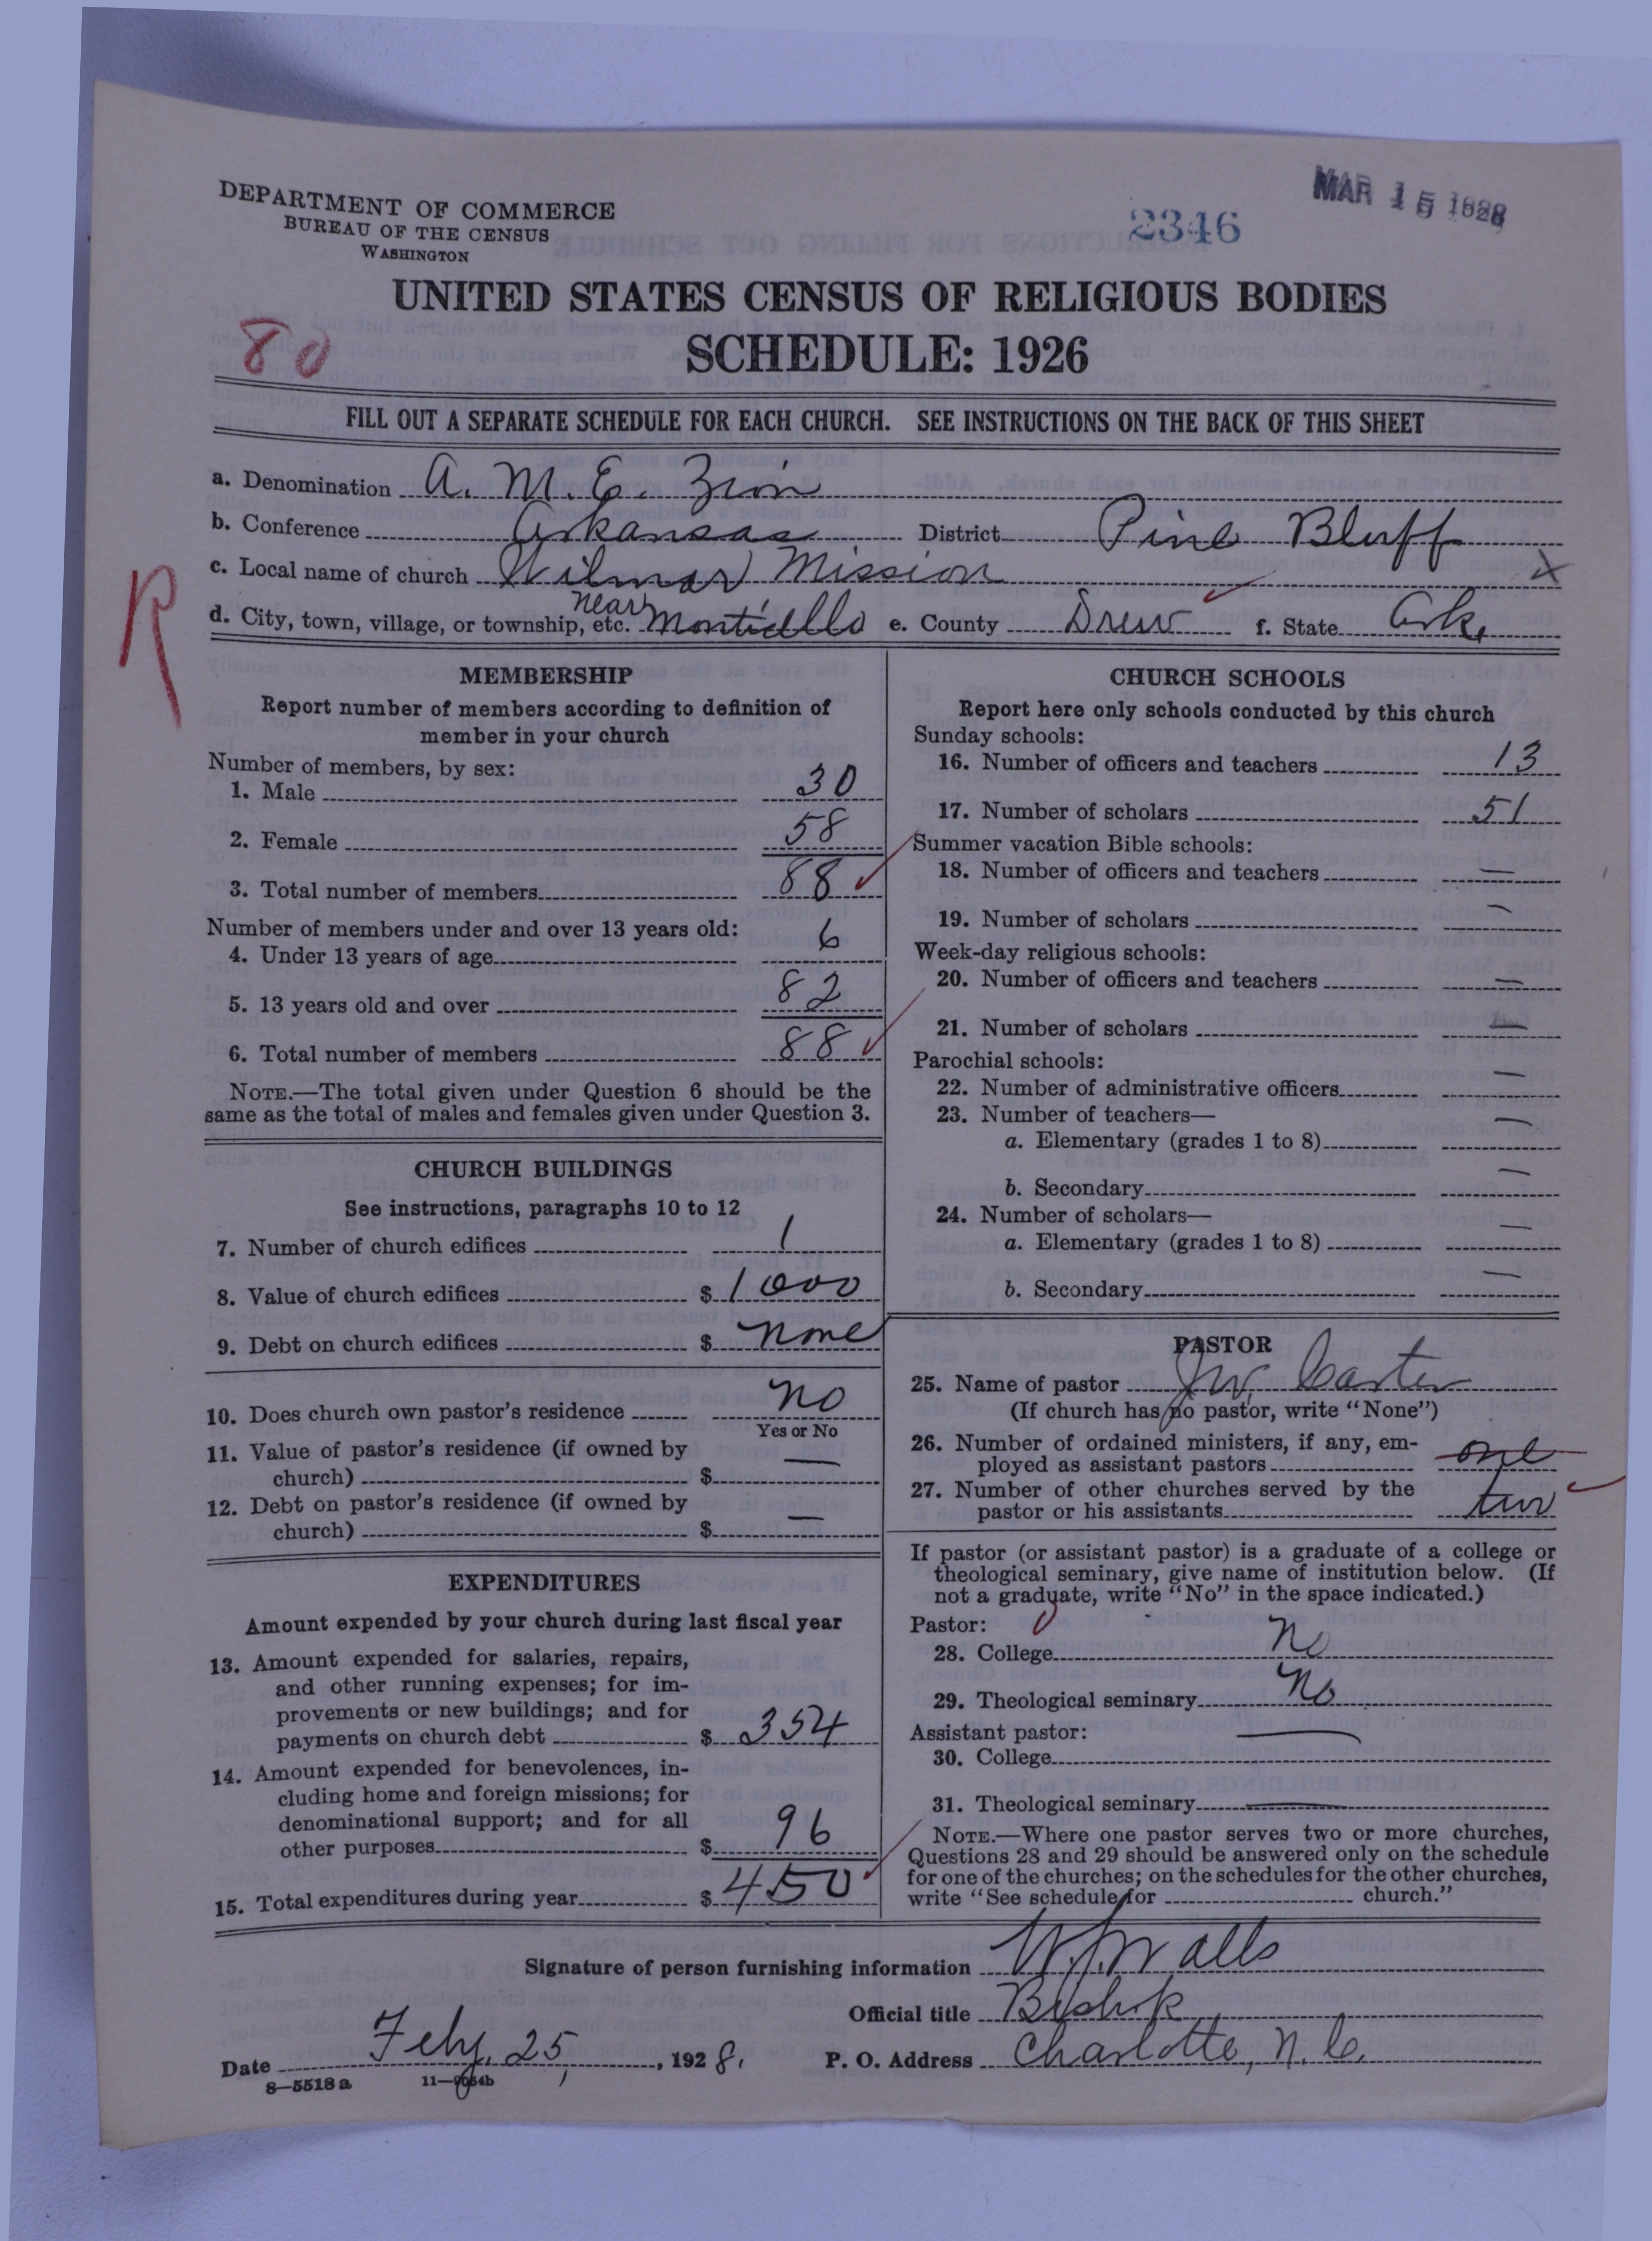 DEPARTMENT OF COMMERCE
BUREAU OF THE CENSUS
WASHINGTON
2346
MAR 15 1928
UNITED STATES CENSUS OF RELIGIOUS BODIES
SCHEDULE: 1926
80
FILL OUT A SEPARATE SCHEDULE FOR EACH CHURCH. SEE INSTRUCTIONS ON THE BACK OF THIS SHEET
a. Denomination A. M. E. Zion
b. Conference Arkansas District Pine Bluff
c. Local name of church Wilmar Mission x
R
d. City, town, village, or township, etc. near Monticello e. County Drew f. State Ark.
MEMBERSHIP
Report number of members according to definition of
member in your church
Number of members, by sex:
1. Male 30
2. Female 58
3. Total number of members 88
Number of members under and over 13 years old:
4. Under 13 years of age 6
5. 13 years old and over 82
6. Total number of members 88
NOTE.—The total given under Question 6 should be the
same as the total of males and females given under Question 3.
CHURCH BUILDINGS
See instructions, paragraphs 10 to 12
7. Number of church edifices 1
8. Value of church edifices $ 1000
9. Debt on church edifices $ none
10. Does church own pastor's residence no
Yes or No
11. Value of pastor's residence (if owned by
church) $ —
12. Debt on pastor's residence (if owned by
church) $ —
EXPENDITURES
Amount expended by your church during last fiscal year
13. Amount expended for salaries, repairs,
and other running expenses; for im-
provements or new buildings; and for
payments on church debt $ 354
14. Amount expended for benevolences, in-
cluding home and foreign missions; for
denominational support; and for all
other purposes $ 96
15. Total expenditures during year $ 450
CHURCH SCHOOLS
Report here only schools conducted by this church
Sunday schools:
16. Number of officers and teachers 13
17. Number of scholars 51
Summer vacation Bible schools:
18. Number of officers and teachers —
19. Number of scholars —
Week-day religious schools:
20. Number of officers and teachers —
21. Number of scholars —
Parochial schools:
22. Number of administrative officers —
23. Number of teachers—
a. Elementary (grades 1 to 8) —
b. Secondary —
24. Number of scholars—
a. Elementary (grades 1 to 8) —
b. Secondary —
PASTOR
25. Name of pastor J. W. Carter
(If church has no pastor, write "None")
26. Number of ordained ministers, if any, em-
ployed as assistant pastors one
27. Number of other churches served by the
pastor or his assistants two
If pastor (or assistant pastor) is a graduate of a college or
theological seminary, give name of institution below. (If
not a graduate, write "No" in the space indicated.)
Pastor:
28. College No
29. Theological seminary No
Assistant pastor:
30. College —
31. Theological seminary —
NOTE.—Where one pastor serves two or more churches,
Questions 28 and 29 should be answered only on the schedule
for one of the churches; on the schedules for the other churches,
write "See schedule for church."
Signature of person furnishing information W. J. Walls
Official title Bishop
Date Feby. 25, 1928. P. O. Address Charlotte, N. C.
8—5518 a 11—9054b